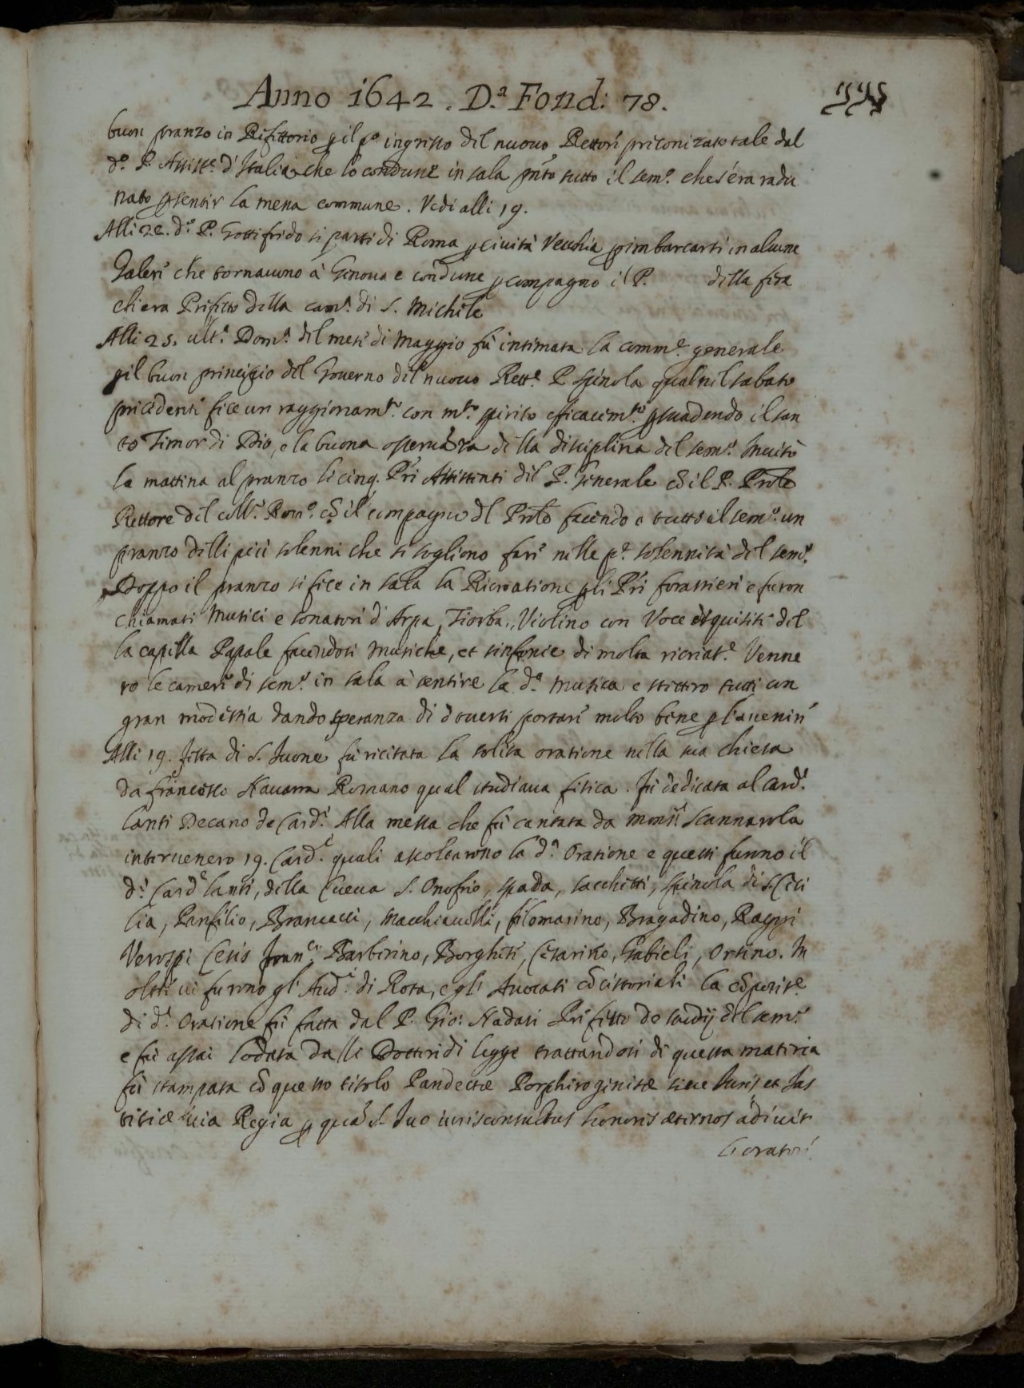 Anno 1642. D.ª Fond: 78.
buon pranzo in Rifettorio p il p.º ingresso del nuovo Rettore preconizato tale dal
d.º P. Assist.e d'Italia, che lo condusse in sala pn̄te tutto il sem.º che s'era radu
nato p sentir la mena commune. Vedi alli 19.
Alli 22. d.º P. Gottifredo si parti di Roma p Cività Vecchia p imbarcarsi in alcune
Galere che tornavano à Genova e condusse p compagno il P. della
ch'era Prefetto della cam.ª di S. Michele
Alli 25. ult.ª Dom.ª del mese di Maggio fù intimata la comm.e generale
p il buon principio del Governo del nuovo Rett.e P. Spinola qual nel sabato
precedente fice un raggionam.to con m.to spirito efficacem.te psuadendo il san
to Timor di Dio, e la buona osservāza della disciplina del sem.º Invitò
la mattina al pranzo li cinq. Pri Assistenti del P. Generale cō il P.
Rettore del coll.º Rom.º cō il compagno del facendo a tutto il sem.º un
pranzo delli più solenni che si sogliono fare nelle p.e solennità del sem.º
Doppo il pranzo si fice in sala la Ricreatione p li Pri forastieri e furon
chiamati Musici e sonatori d'Arpa, Tiorba, Violino con Voce esquisite del
la capella Papale facendosi musiche, et sinfonie di molta ricreat.e Venne
ro le camere di sem.º in sala à sentire la d.ª musica e stettero tutti con
gran modestia dando speranza di doversi portare molto bene p l'avenire
Alli 19. festa di S. Ivone fù recitata la solita oratione nella sua chiesa
da Francesco Navarra Romano qual studiava fisica. Fù dedicata al Card.e
Lanti Decano de Card.i Alla messa che fù cantata da Monsr Scannarola
intervenero 19. Card.i quali ascoltarono la d.ª Oratione e questi furono il
d.º Card.e Lanti, della Cueva S. Onofrio, Spada, Sacchetti, Spinola di S. Ceci
lia, Panfilio, Brancacci, Macchiavelli, Filomarino, Bragadino, Raggi
Verospi Cesis Barberino, Borghese, Cesarino, Gabieli, Orsino. In
oltre vi furono gl'Aud.i di Rota, e gl'Avocati cōcistoriali la cōposit.e
di d.ª Oratione fù fatta dal P. Gio: Nadasi Prefetto de studij del sem.º
e fù assai lodata dalli Dottori di legge trattandosi di questa materia
fù stampata cō questo titolo Pandectæ Porphirogenitæ sive Iuris et Ius
titiæ via Regia p quā S. Ivo iurisconsultus honores æternos adivit
L'oratore